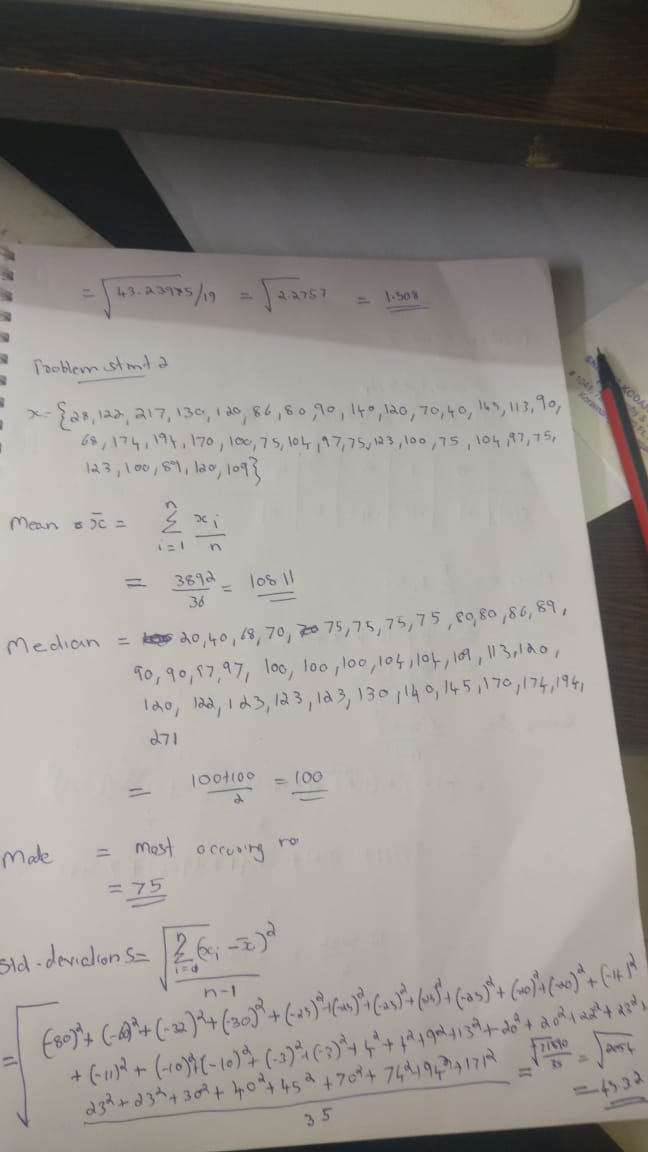 = √43.23975/19 = √2.2757 = 1.508
Problem stmt 2
x = {28, 122, 217, 130, 120, 86, 80, 90, 140, 120, 70, 40, 145, 113, 90,
68, 174, 194, 170, 100, 75, 104, 97, 75, 123, 100, 75, 104, 97, 75,
123, 100, 89, 120, 109}
Mean x̄ = n Σ i=1 xi/n
= 3892/36 = 108.11
Median = 20, 40, 68, 70, 75, 75, 75, 75, 80, 80, 86, 89,
90, 90, 97, 97, 100, 100, 100, 104, 104, 109, 113, 120,
120, 122, 123, 123, 123, 130, 140, 145, 170, 174, 194,
271
= 100+100/2 = 100
Mode = most occuring no
= 75
Std-deviation S = √ n Σ (xi - x̄)² / n-1
= √ (-80)² + (-60)² + (-32)² + (30)² + (-25)² + (-25)² + (-25)²
+ (-11)² + (-10)² + (-10)² + (-3)² + (-3)² + 4² + 4² + 9² + 13² + 20² + 20² + 22² + 23² +
23² + 23² + 30² + 40² + 45² + 70² + 74² + 94² + 171²
35
= 45.32